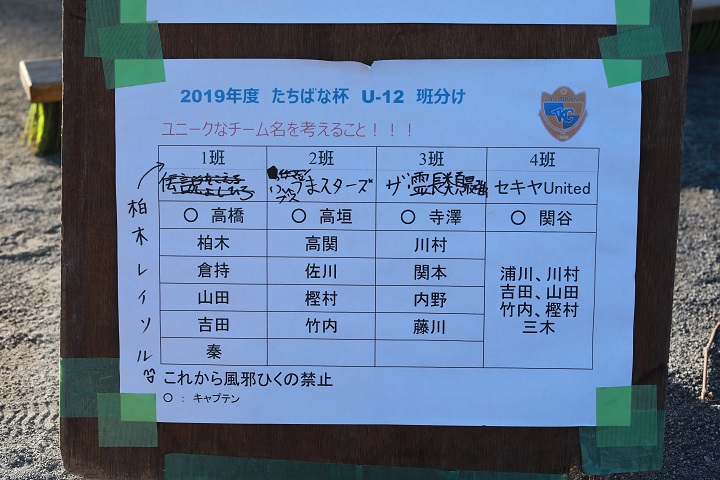 2019年度 たちばな杯 U-12 班分け
ユニークなチーム名を考えること！！！
1班 2班 3班 4班
まスターズ ザ セキヤUnited
○ 高橋 ○ 高垣 ○ 寺澤 ○ 関谷
柏木 高関 川村
倉持 佐川 関本
山田 樫村 内野
吉田 竹内 藤川
秦
浦川、川村
吉田、山田
竹内、樫村
三木
柏木レイソル
これから風邪ひくの禁止
○ ： キャプテン